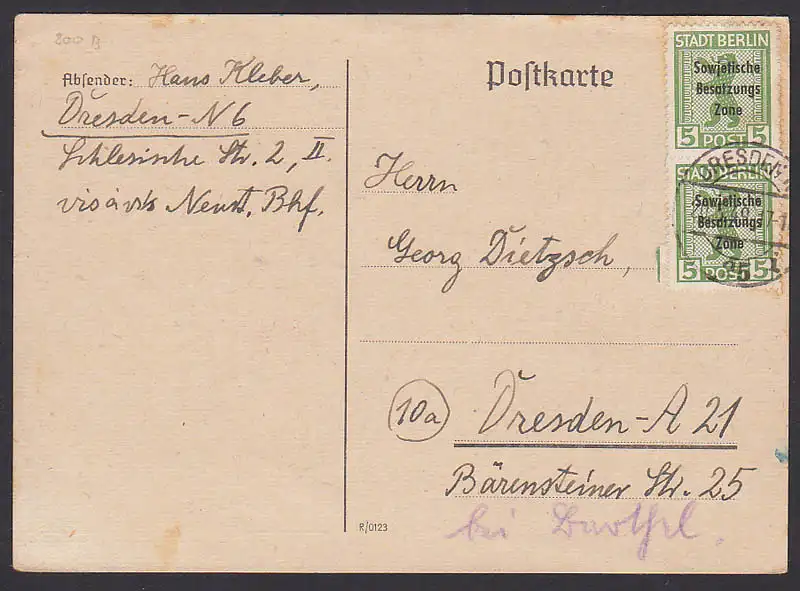 200 B
Absender: Hans Kleber,
Dresden-N 6
Schlesische Str. 2, II.
visàvis Neust. Bhf.
Postkarte
Herrn
Georg Dietzsch,
10a
Dresden-A 21
Bärensteiner Str. 25
bei Barthel.
R/0123
STADT BERLIN
Sowjetische
Besatzungs
Zone
5 POST 5
STADT BERLIN
Sowjetische
Besatzungs
Zone
5 POST 5
DRESDEN